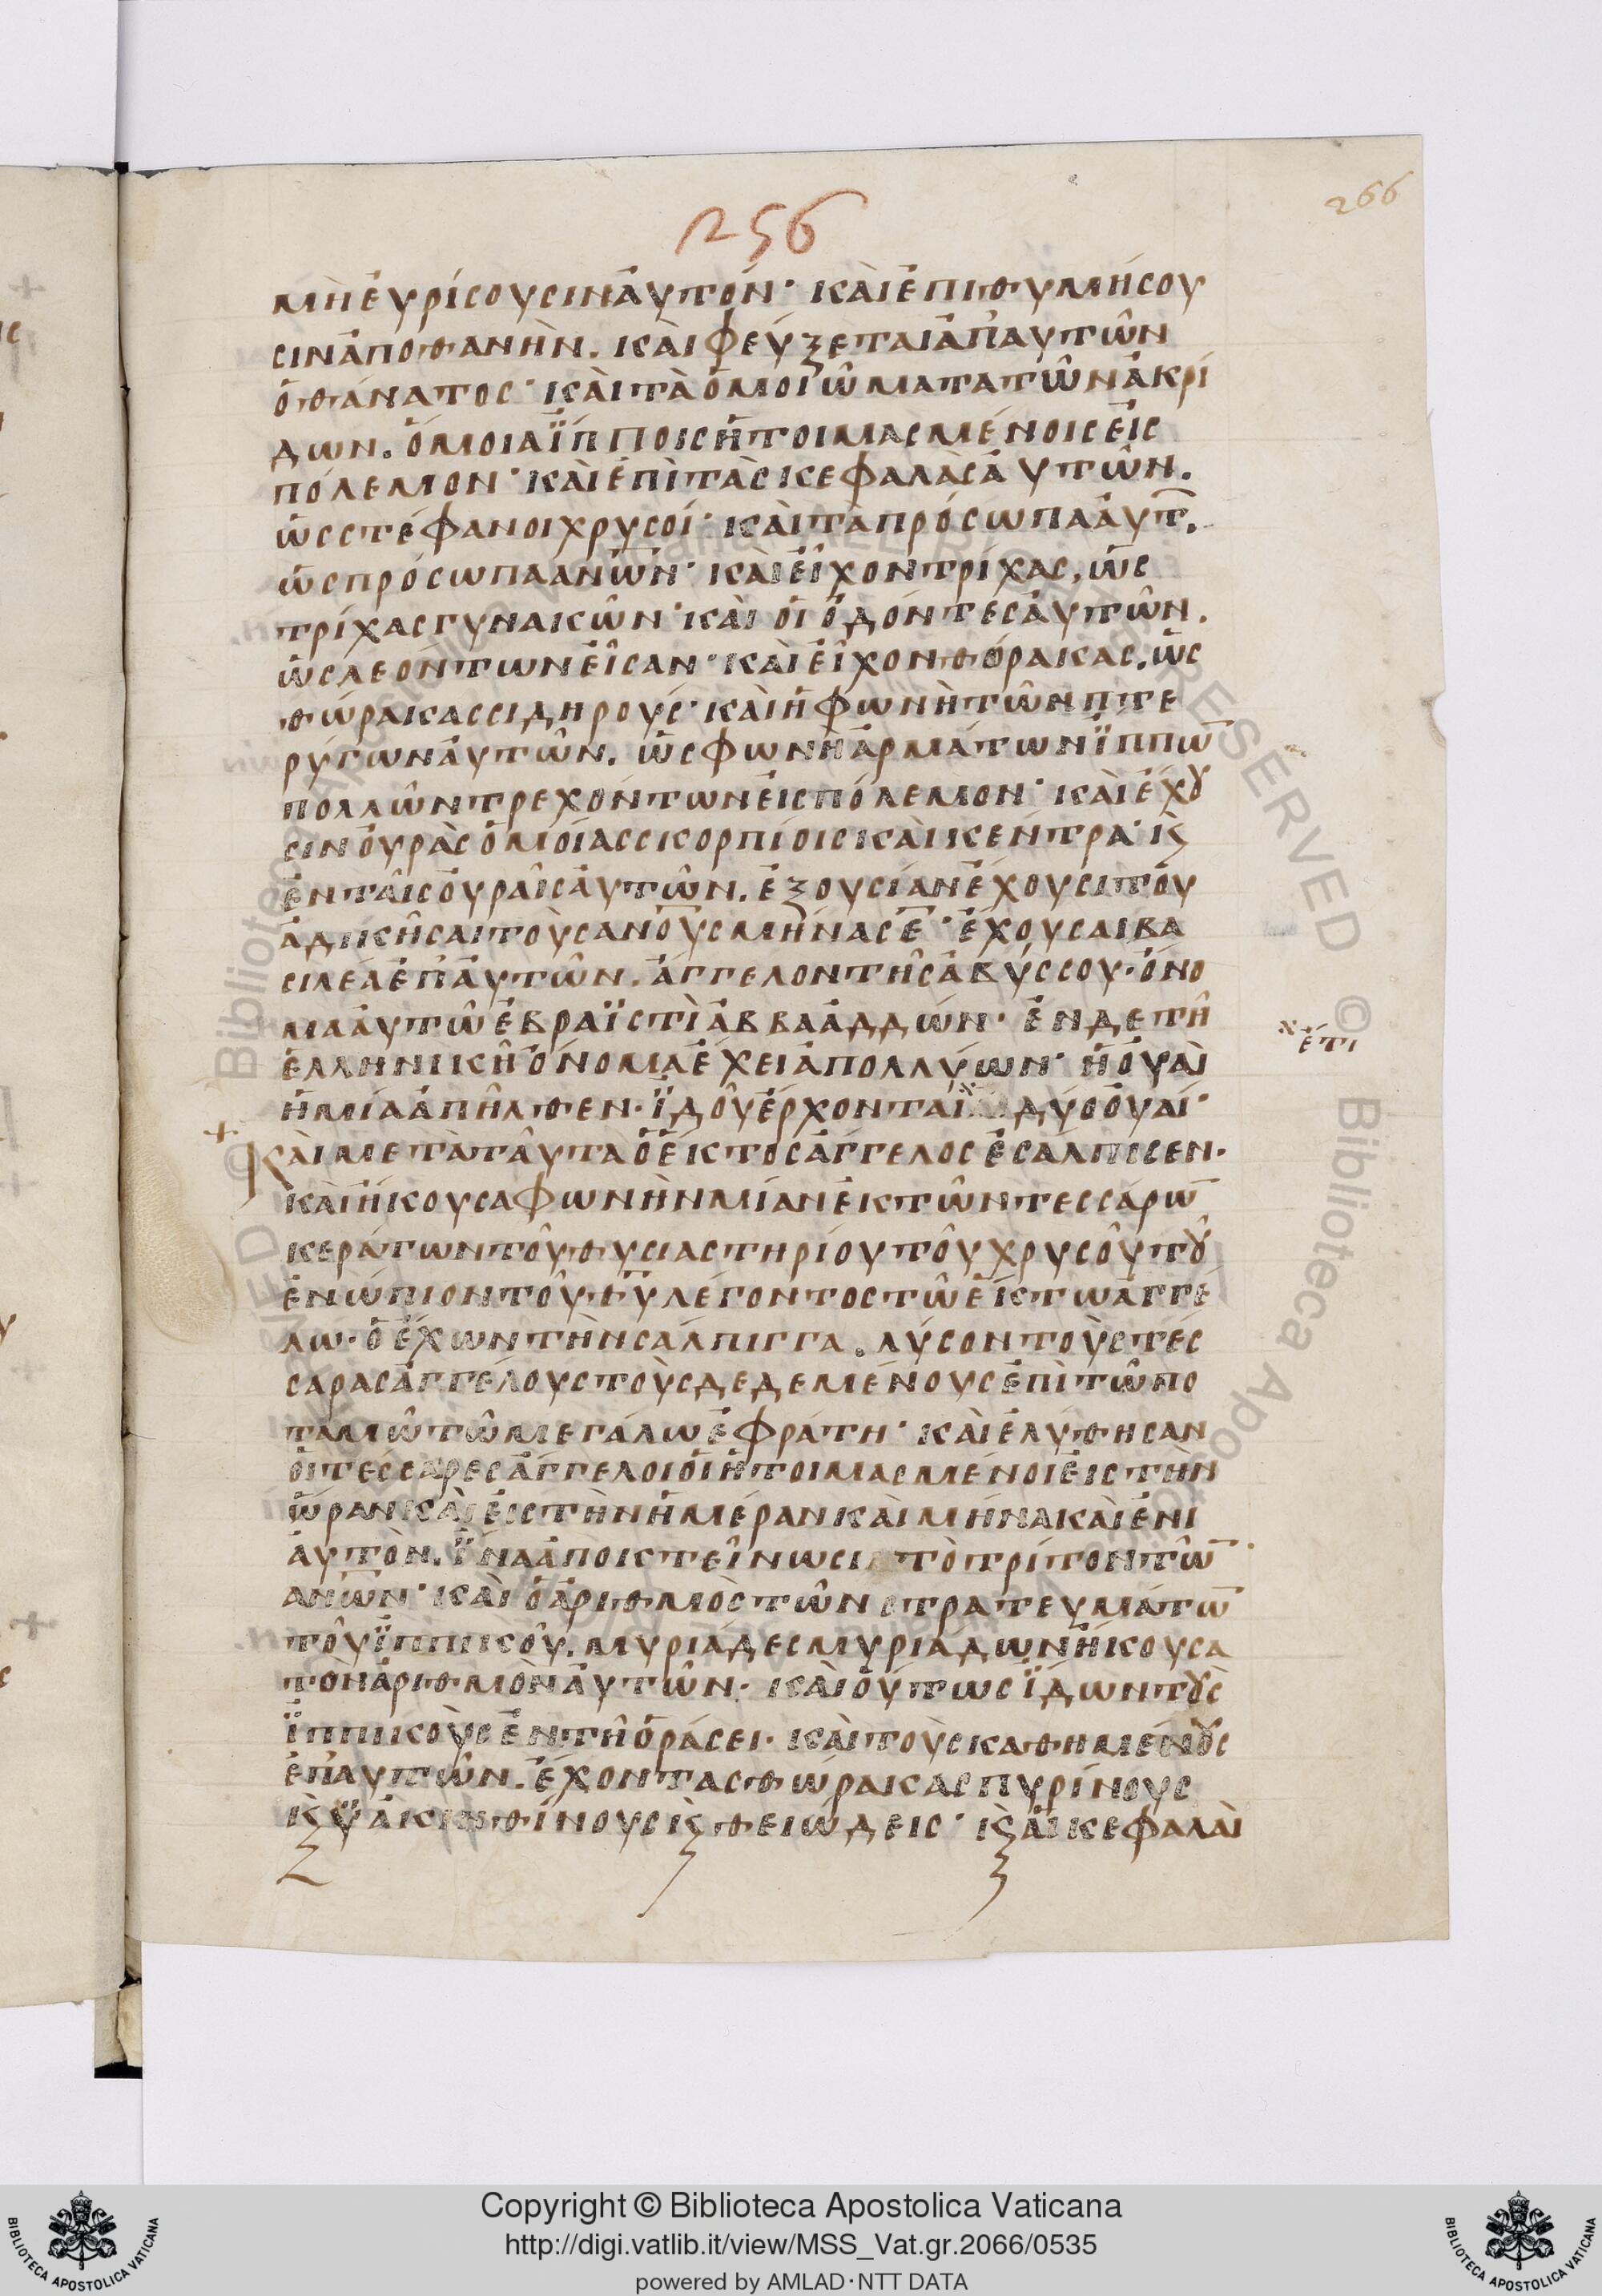 256
266
ΜῊἘΥΡΊСΟΥСΙΝἈΥΤΌΝ· ΚΑῚἘΠΙΘΥΜΉСΟΥ
СΙΝἈΠΟΘΑΝΗ͂Ν. ΚΑῚΦΕΎΞΕΤΑΙἈΠ᾽ΑΥΤΩ͂Ν
ὉΘΆΝΑΤΟС· ΚΑῚΤᾺὉΜΟΙΏΜΑΤΑΤΩ͂ΝἈΚΡΊ
ΔΩΝ. ὍΜΟΙΑΪ́ΠΠΟΙСἩΤΟΙΜΑСΜΈΝΟΙСἘΙС
ΠΌΛΕΜΟΝ· ΚΑῚἘΠῚΤᾺСΚΕΦΑΛᾺСἈΥΤΩ͂Ν.
ὩССΤΈΦΑΝΟΙΧΡΥСΟΊ· ΚΑῚΤᾺΠΡΌСΩΠΑἈΥΤ̅.
ὩСΠΡΌСΩΠΑΑΝ̅Ω̅Ν· ΚΑῚἘΙ͂ΧΟΝΤΡΊΧΑС, ὩС
ΤΡΊΧΑСΓΥΝΑΙΚΩ͂Ν· ΚΑῚ ὉΙ ὈΔΌΝΤΕСἈΥΤΩ͂Ν.
ὩСΛΕΌΝΤΩΝἘΙ͂СΑΝ· ΚΑῚἘΙ͂ΧΟΝΘΌΡΑΚΑС, ὩС
ΘΏΡΑΚΑССΙΔΗΡΟΎС· ΚΑῚἩΦΩΝῊΤΩ͂ΝΠΤΕ
ΡΎΓΩΝἈΥΤΩ͂Ν. ὩСΦΩΝΗἈΡΜΆΤΩΝΪ́ΠΠΩ̅
ΠΟΛΛΩ͂ΝΤΡΕΧΌΝΤΩΝἘΙСΠΌΛΕΜΟΝ· ΚΑῚἜΧȢ
СΙΝὈΥΡᾺСὉΜΟΊΑССΚΟΡΠΊΟΙСΚΑῚΚΕΝΤΡΑ· Κϛ
ἘΝΤΑΙ͂СὈΥΡΑΙ͂СἈΥΤΩ͂Ν. ἘΞΟΥСΊΑΝἜΧΟΥСΙΤΟΥ
ἈΔΙΚΗ͂СΑΙΤΟῪСΑΝ̅Ο̅Υ̅СΜΗ͂ΝΑСΕ̅· ἜΧΟΥСΑΙΒΑ
СΙΛΕΑἘΠ᾽ἈΥΤΩ͂Ν. ἌΓΓΕΛΟΝΤΗ͂СἈΒΎССΟΥ· ὌΝΟ
ΜΑἈΥΤΩ͂ἘΒΡΑΪСΤῚἈΒΒΑΑΔΔΏΝ· ἘΝΔΕΤΗ͂
ἙΛΛΗΝΙΚΗ͂ὌΝΟΜΑἜΧΕΙἈΠΟΛΛΎΩΝ· ἩΟΥΑῚ
ἩΜΊΑἈΠΗ͂ΛΘΕΝ· ΪΔΟῪἜΡΧΟΝΤΑΙ ΔΎΟΟΥΑΊ·
ἔτι
ΚΑῚΜΕΤᾺΤΑΥ͂ΤΑὉἝΚΤΟСἌΓΓΕΛΟСἘСΆΛΠΙСΕΝ·
ΚΑῚἬΚΟΥСΑΦΩΝῊΝΜΊΑΝἘΚΤΩ͂ΝΤΕССΆΡΩ̅
ΚΕΡΆΤΩΝΤΟΥ͂ΘΥСΙΑСΤΗΡΊΟΥΤΟΥ͂ΧΡΥСΟΥ͂ΤȢ͂
ἘΝΏΠΙΟΝΤΟΥ͂Θ̅Υ̅ΛΈΓΟΝΤΟСΤΩ͂ἝΚΤΩἈΓΓΈ
ΛΩ· ὉἜΧΩΝΤῊΝСΆΛΠΙΓΓΑ. ΛΎСΟΝΤΟῪСΤΈС
СΑΡΑСἈΓΓΈΛΟΥСΤΟῪСΔΕΔΕΜΈΝΟΥСἘΠῚΤΩ͂ΠΟ
ΤΑΜΩ͂ΤΩ͂ΜΕΓΆΛΩἘΦΡΆΤΗ· ΚΑῚἘΛΎΘΗСΑΝ
ὉΙΤΈССΑΡΕСἌΓΓΕΛΟΙὉΙἩΤΟΙΜΑСΜΈΝΟΙἘΙСΤῊΝ
ὭΡΑΝΚΑῚἘΙСΤῊΝἩΜΈΡΑΝΚΑῚΜΗ͂ΝΑΚΑῚἘΝΙ
ἈΥΤῸΝ. ΪΝΑἈΠΟΚΤΕΊΝΩСΙ ΤῸΤΡΊΤΟΝΤΩ̅
ΑΝ̅Ω̅Ν· ΚΑῚ ὉἈΡΙΘΜῸСΤΩ͂Ν СΤΡΑΤΕΥΜΆΤΩ̅
ΤΟΥ͂ΪΠΠΙΚΟΥ͂. ΜΥΡΙΆΔΕСΜΥΡΙΆΔΩΝἬΚΟΥСΑ
ΤῸΝἈΡΙΘΜῸΝἈΥΤΩ͂Ν· ΚΑῚΟΎΤΩСΪΔΩΝΤȢ̀С
ΪΠΠΙΚΟῪСἘΝΤΗ͂ὉΡΆСΕΙ· ΚΑῚΤΟῪСΚΑΘΗΜΈΝȢС
ἘΠ᾽ΑΥΤΩ͂Ν. ἜΧΟΝΤΑСΘΏΡΑΚΑСΠΥΡΊΝΟΥС
Κϛ̀ΫΑΚΙΝΘΊΝΟΥСΚϛ̀ΘΕΙΏΔΕΙС· Κϛ̀ἉΙΚΕΦΑΛΑῚ
Copyright © Biblioteca Apostolica Vaticana
http://digi.vatlib.it/view/MSS_Vat.gr.2066/0535
powered by AMLAD·NTT DATA